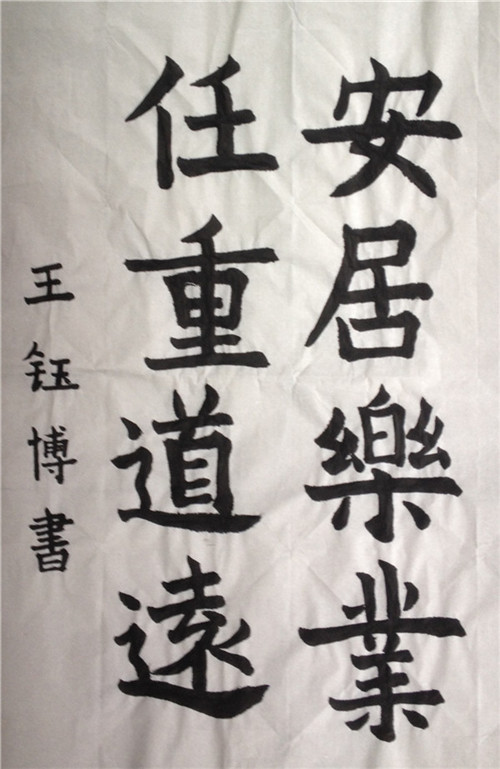 安居樂業
任重道遠
王钰博書